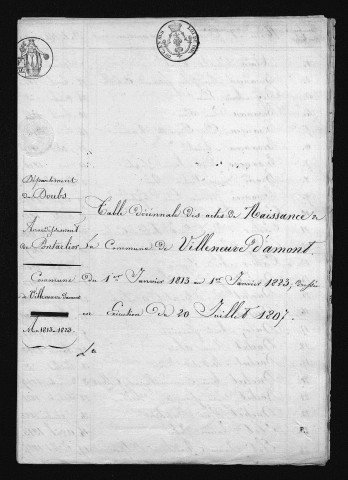 Département
du Doubs.
Arrondissement
de Pontarlier
Commune
de Villeneuve d'amont
N. 1813-1823
Table décennale des actes de Naissance de
la Commune de Villeneuve d'amont.
Du 1er Janvier 1813 au 1er Janvier 1823, dressée
en Exécution du 20 Juillet 1807.
La